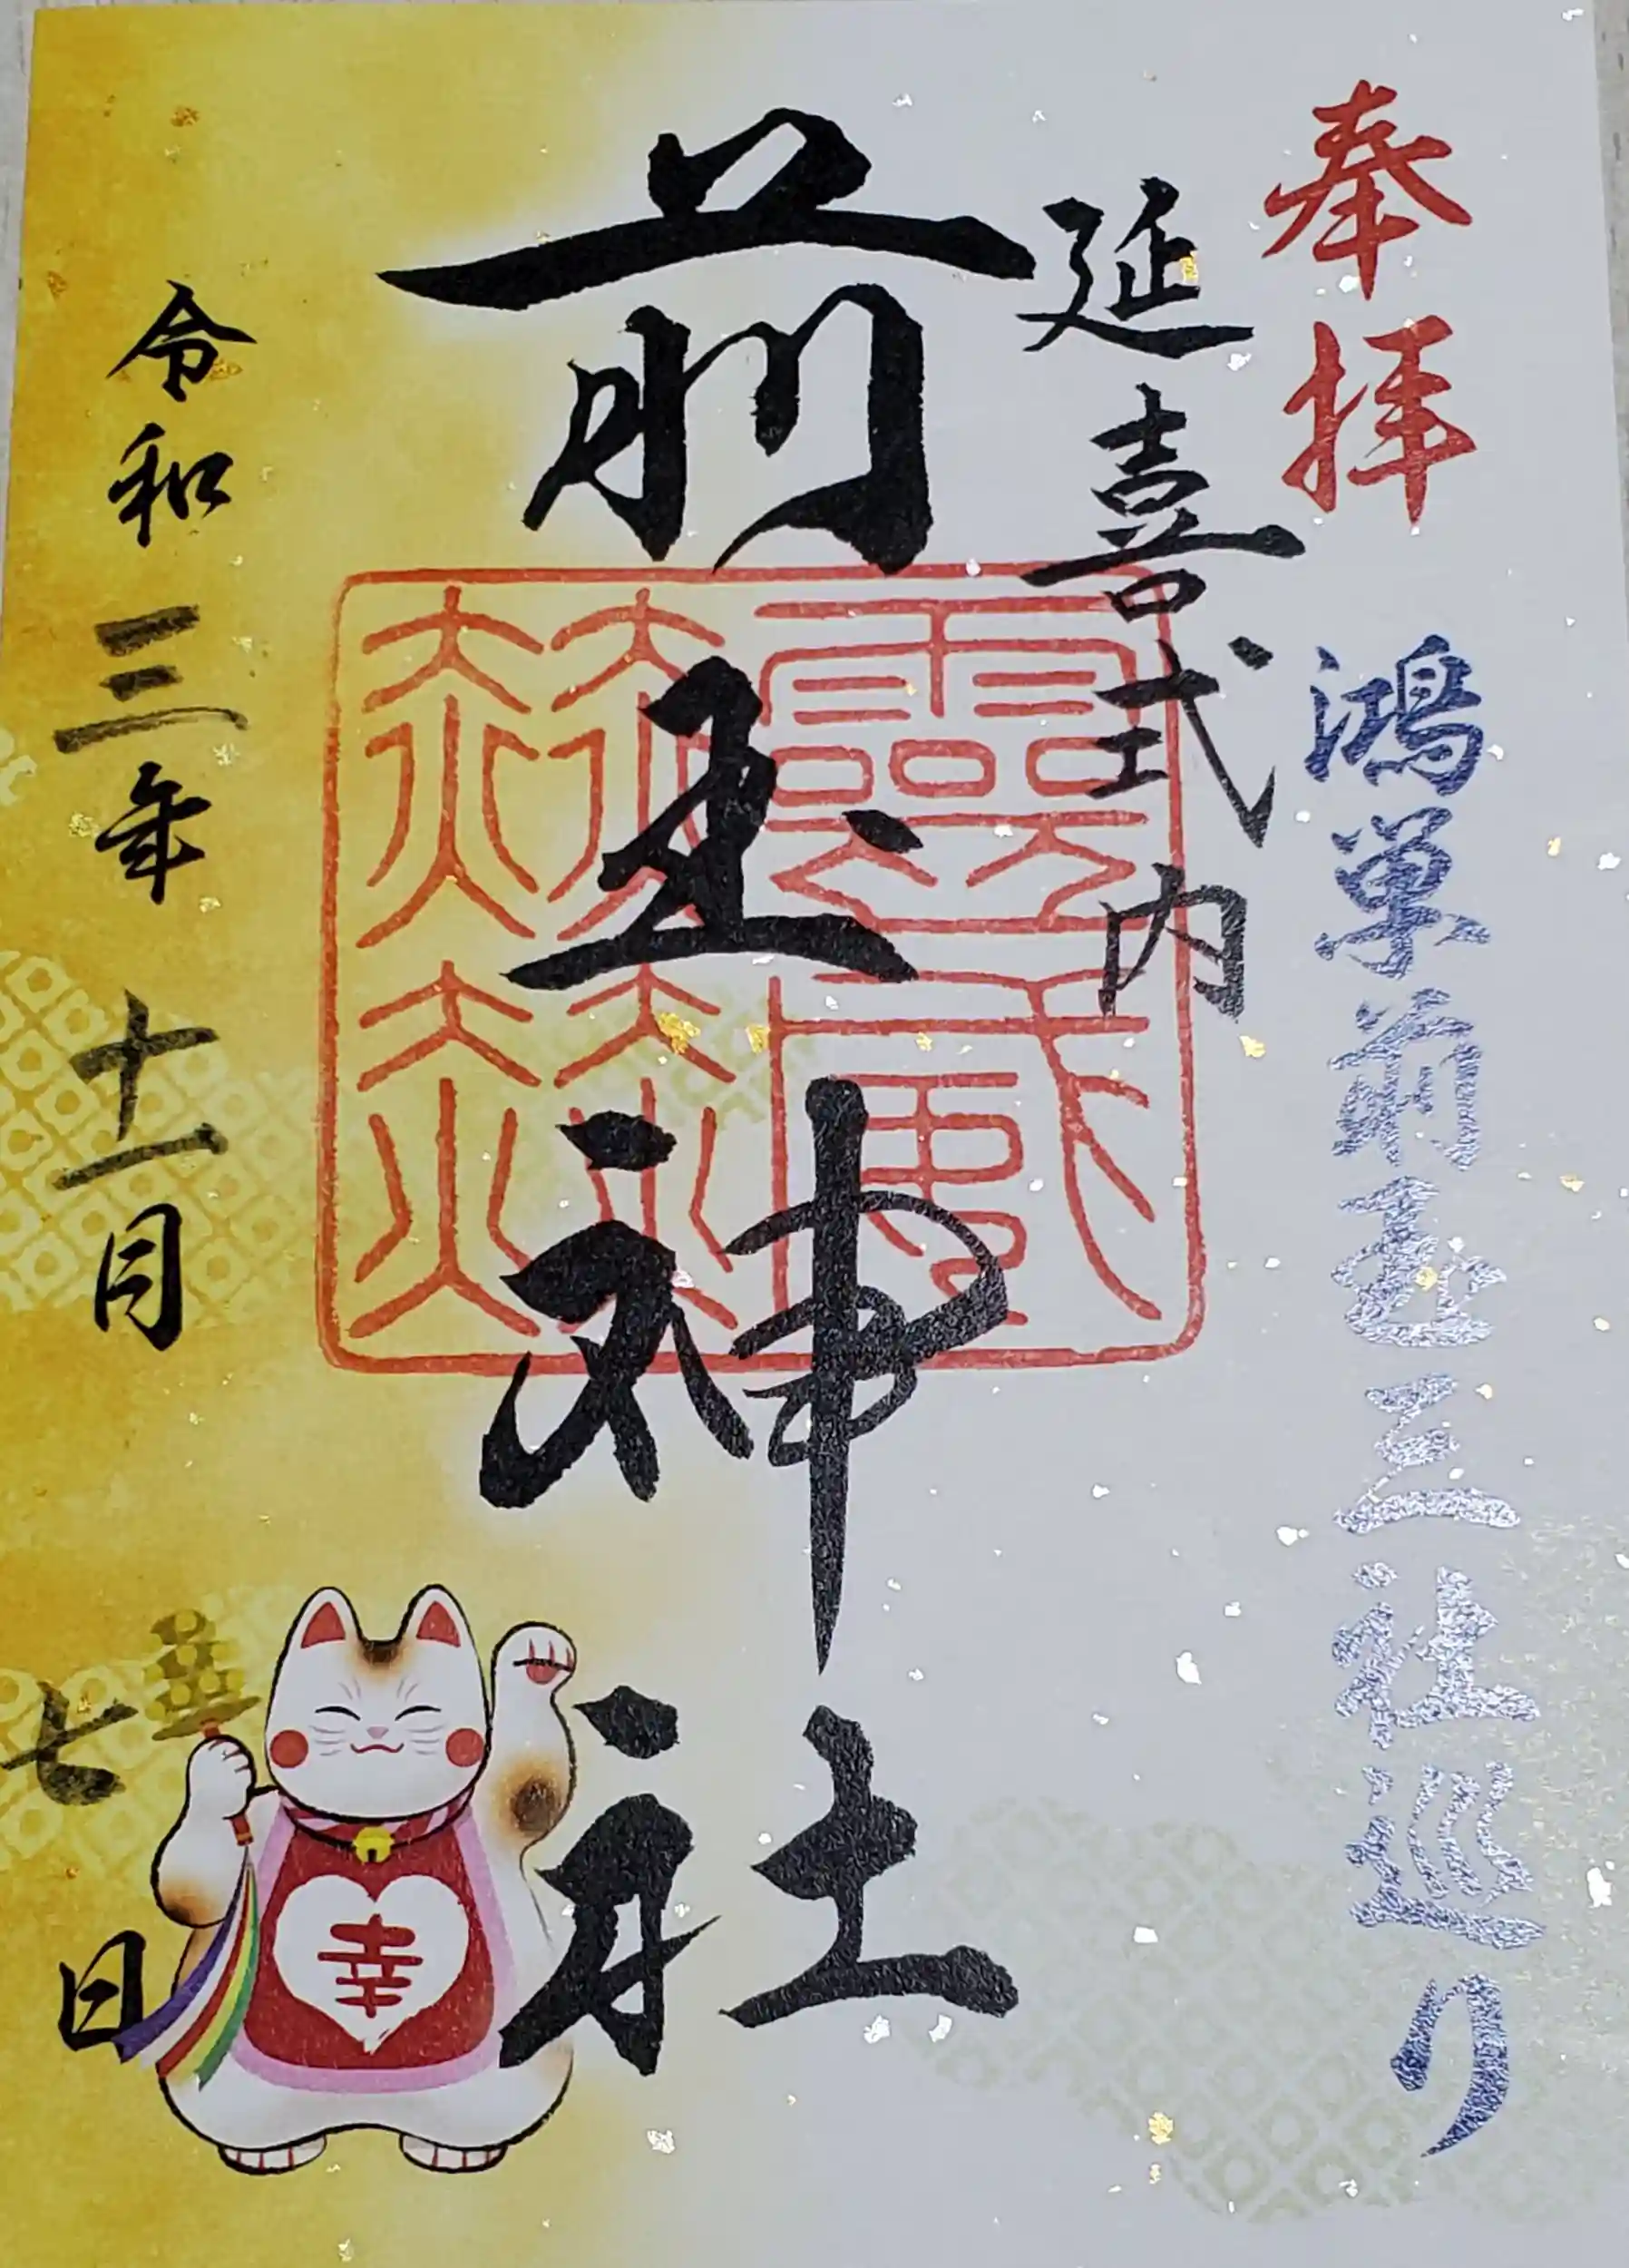 奉拝
鴻巣前玉三社巡り
延喜式内
前玉神社
靈威
赫赫
令和三年十一月七日
幸